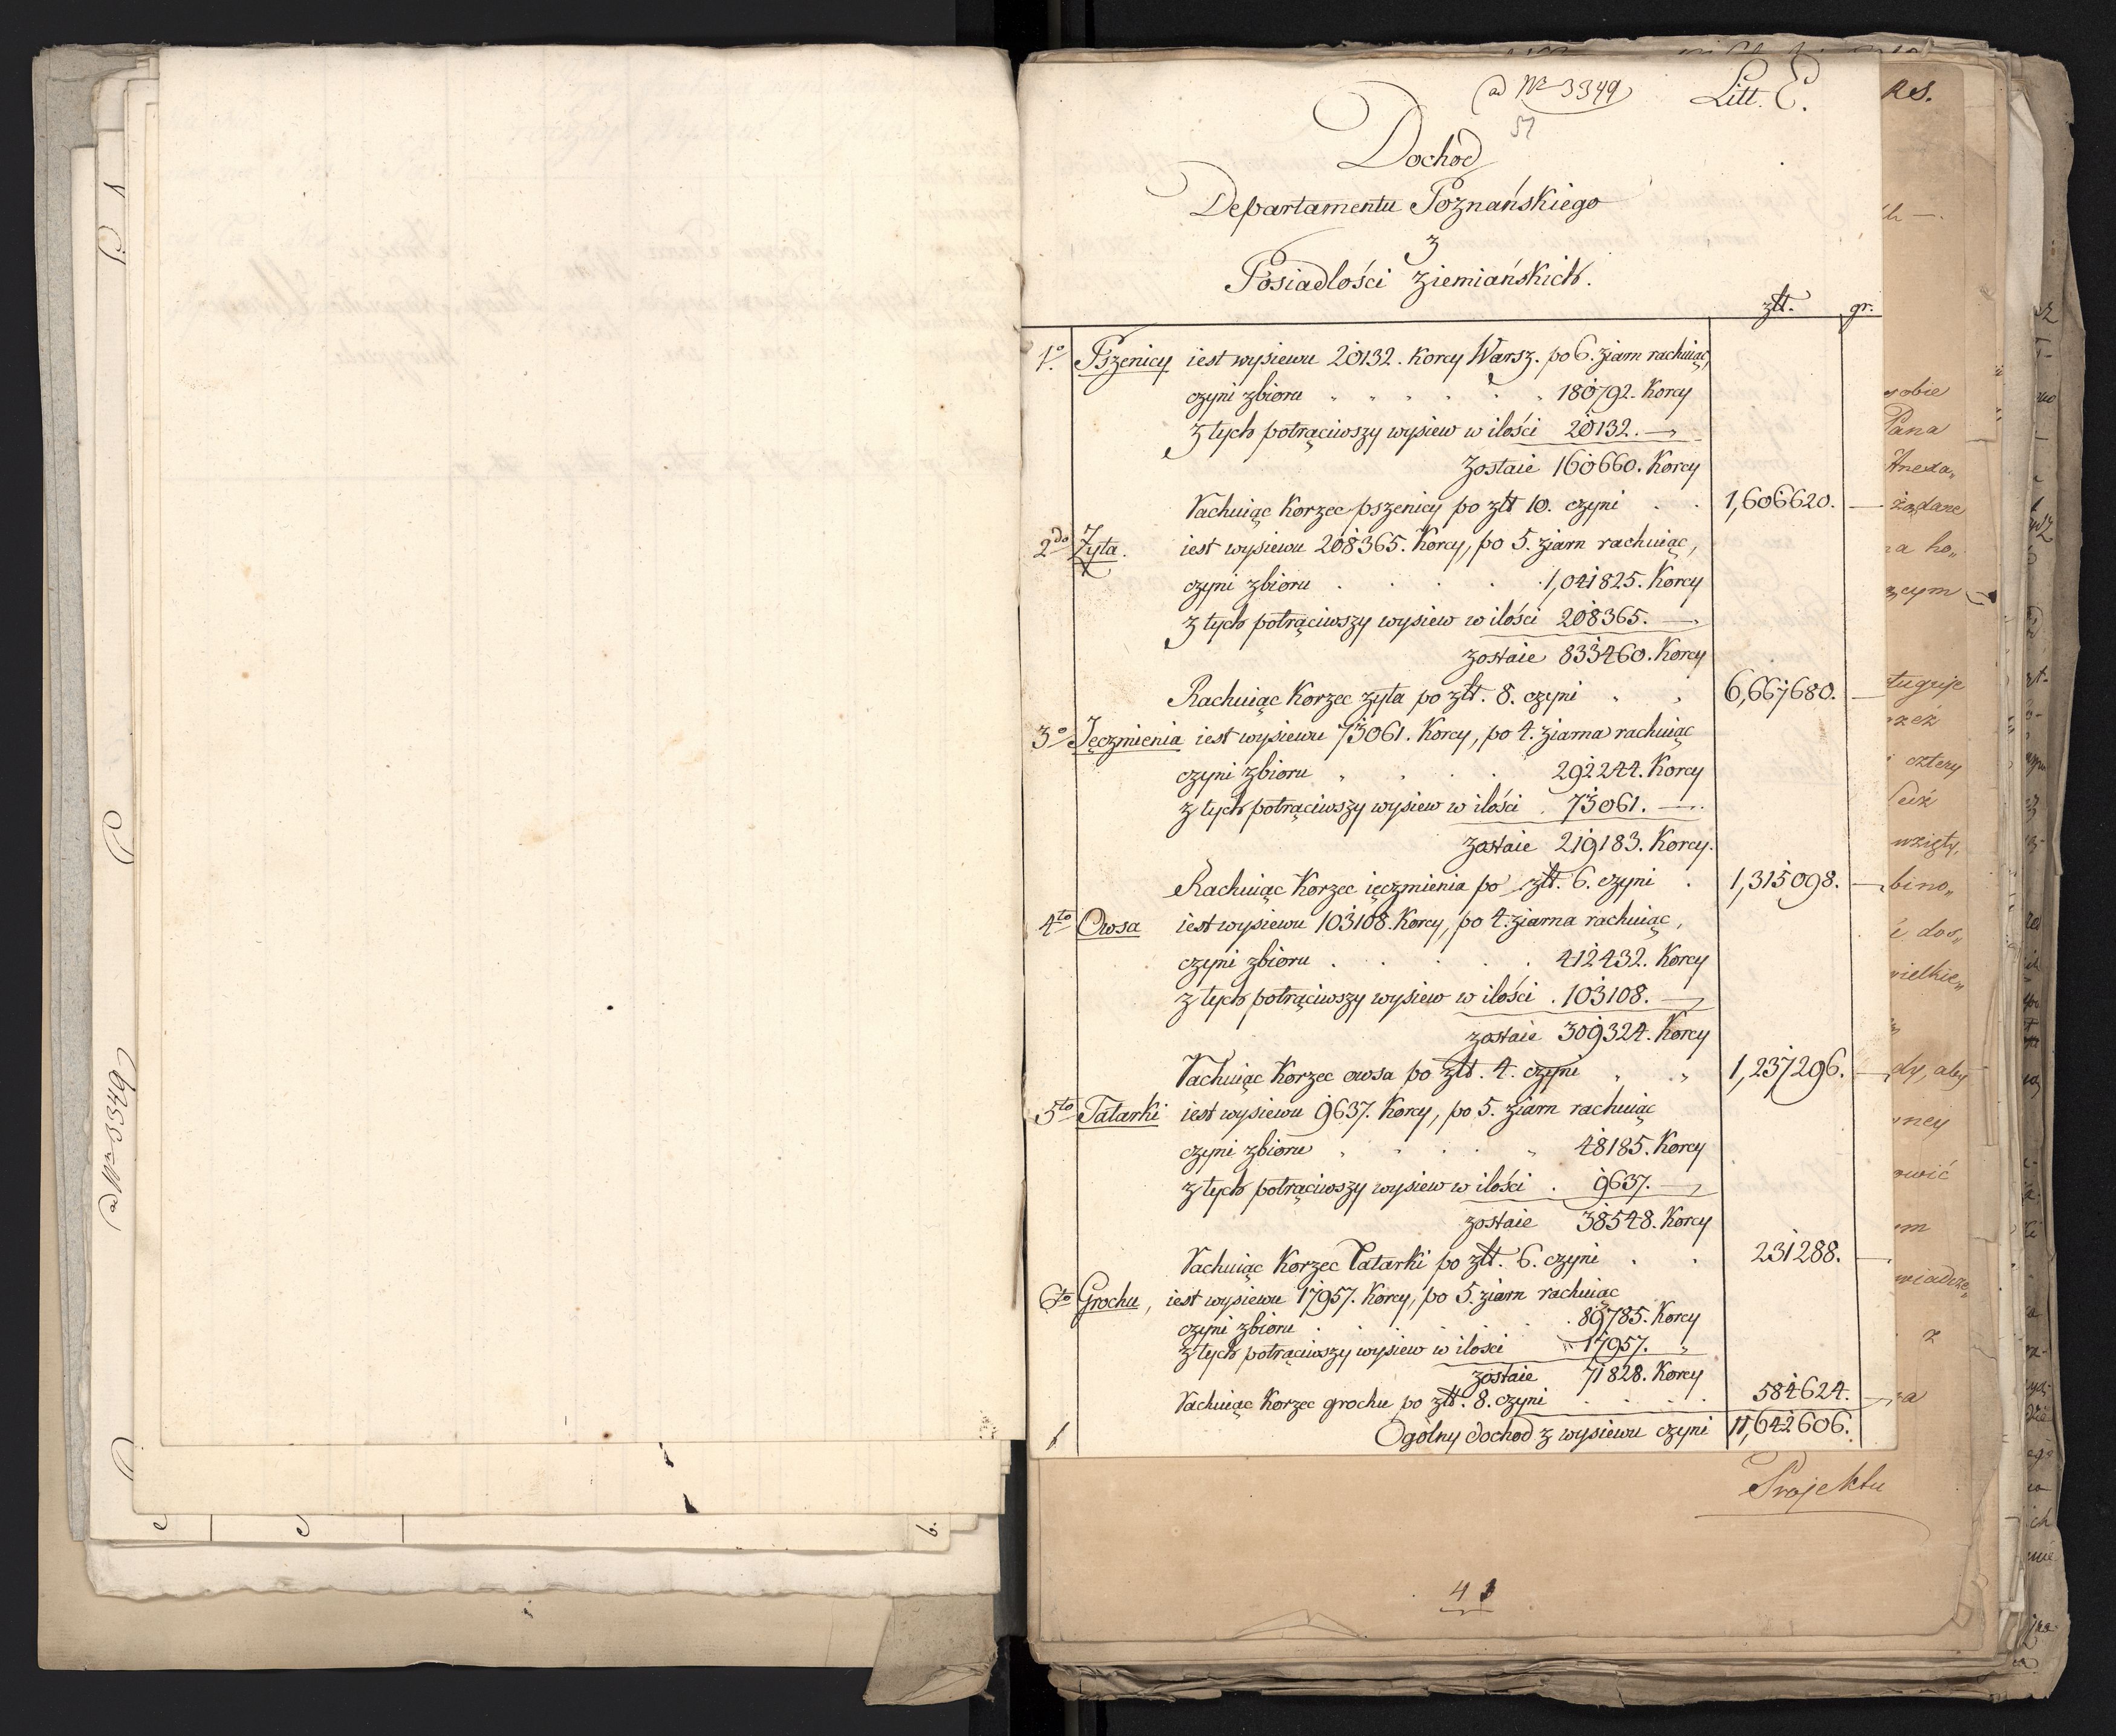 ad Nro 3349
Litt. E.
51
Dochod
Departamentu Poznańskiego
z
Posiadłości ziemiańskich.
złt. gr.
1o Pszenicy iest wysiewu 20132. Korcy Warsz. po 6. ziarn rachuiąc,
czyni zbioru 180792. Korcy
z tych potrąciwszy wysiew w ilości 20132. —
zostaie 160660. Korcy
Rachuiąc Korzec pszenicy po złt 10. czyni . . 1,606620. —
2do Zyta. iest wysiewu 208365. Korcy, po 5. ziarn rachuiąc,
czyni zbioru . . . . 1,041825. Korcy
z tych potrąciwszy wysiew w ilości 208365. —
zostaie 833460. Korcy
Rachuiąc Korzec zyta po złt. 8. czyni 6,667680. —
3o Jęczmienia iest wysiewu 73061. Korcy, po 4. ziarna rachuiąc
czyni zbioru 292244. Korcy
z tych potrąciwszy wysiew w ilości . 73061. —
zostaie 219183. Korcy.
Rachuiąc Korzec ięczmienia po złt. 6. czyni . 1,315098. —
4to Owsa iest wysiewu 103108. Korcy, po 4. ziarna rachuiąc,
czyni zbioru . . . . . 412432. Korcy
z tych potrąciwszy wysiew w ilości . 103108. —
zostaie 309324. Korcy
Rachuiąc Korzec owsa po złt. 4. czyni 1,237296. —
5to Tatarki iest wysiewu 9637. Korcy, po 5. ziarn rachuiąc
czyni zbioru 48185. Korcy
z tych potrąciwszy wysiew w ilości . 9637. —
zostaie 38548. Korcy
Rachuiąc Korzec Tatarki po złt. 6. czyni . . 231288. —
6to Grochu, iest wysiewu 17957. Korcy, po 5. ziarn rachuiąc
czyni zbioru . . . . 89785. Korcy
z tych potrąciwszy wysiew w ilości 17957. "
zostaie 71828. Korcy
Rachuiąc Korzec grochu po złt. 8. czyni . . . . 584624. —
Ogólny dochod z wysiewu czyni 11,642606.
Projektu
ad Nro 3349
Res.
sobie
Pana
Anexa„
żądane
na ho„
tuguje
cztery
wzięty,
bino„
i dos„
wielkie„
dy, aby
wiadze„
z